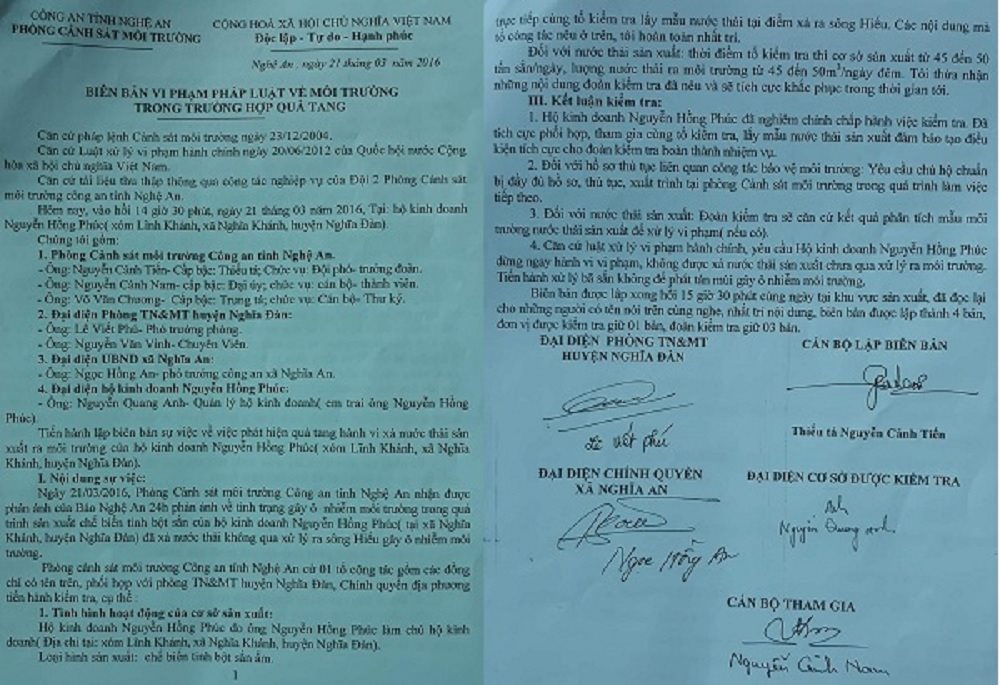 CÔNG AN TỈNH NGHỆ AN
PHÒNG CẢNH SÁT MÔI TRƯỜNG
CỘNG HOÀ XÃ HỘI CHỦ NGHĨA VIỆT NAM
Độc lập - Tự do - Hạnh phúc
Nghệ An , ngày 21 tháng 03 năm 2016
BIÊN BẢN VI PHẠM PHÁP LUẬT VỀ MÔI TRƯỜNG
TRONG TRƯỜNG HỢP QUẢ TANG
Căn cứ pháp lệnh Cảnh sát môi trường ngày 23/12/2004.
Căn cứ Luật xử lý vi phạm hành chính ngày 20/06/2012 của Quốc hội nước Cộng
hòa xã hội chủ nghĩa Việt Nam.
Căn cứ tài liệu thu thập thông qua công tác nghiệp vụ của Đội 2 Phòng Cảnh sát
môi trường công an tỉnh Nghệ An.
Hôm nay, vào hồi 14 giờ 30 phút, ngày 21 tháng 03 năm 2016, Tại: hộ kinh doanh
Nguyễn Hồng Phúc( xóm Lĩnh Khánh, xã Nghĩa Khánh, huyện Nghĩa Đàn).
Chúng tôi gồm:
1. Phòng Cảnh sát môi trường Công an tỉnh Nghệ An.
- Ông: Nguyễn Cảnh Tiến- Cấp bậc: Thiếu tá; Chức vụ: Đội phó- trưởng đoàn.
- Ông: Nguyễn Cảnh Nam- cấp bậc: Đại úy; chức vụ: cán bộ- thành viên.
- Ông: Võ Văn Chương- Cấp bậc: Trung tá; chức vụ: Cán bộ- Thư ký.
2. Đại diện Phòng TN&MT huyện Nghĩa Đàn:
- Ông: Lê Viết Phú- Phó trưởng phòng.
- Ông: Nguyễn Văn Vinh- Chuyên Viên.
3. Đại diện UBND xã Nghĩa An:
- Ông: Ngọc Hồng An- phó trưởng công an xã Nghĩa An.
4. Đại diện hộ kinh doanh Nguyễn Hồng Phúc:
- Ông: Nguyễn Quang Anh- Quản lý hộ kinh doanh( em trai ông Nguyễn Hồng
Phúc).
Tiến hành lập biên bản sự việc về việc phát hiện quả tang hành vi xả nước thải sản
xuất ra môi trường của hộ kinh doanh Nguyễn Hồng Phúc( xóm Lĩnh Khánh, xã Nghĩa
Khánh, huyện Nghĩa Đàn).
I. Nội dung sự việc:
Ngày 21/03/2016, Phòng Cảnh sát môi trường Công an tỉnh Nghệ An nhận được
phản ánh của Báo Nghệ An 24h phản ánh về tình trạng gây ô nhiễm môi trường trong quá
trình sản xuất chế biến tinh bột sắn của hộ kinh doanh Nguyễn Hồng Phúc( tại xã Nghĩa
Khánh, huyện Nghĩa Đàn) đã xả nước thải không qua xử lý ra sông Hiếu gây ô nhiễm môi
trường.
Phòng cảnh sát môi trường Công an tỉnh Nghệ An cử 01 tổ công tác gồm các đồng
chí có tên trên, phối hợp với phòng TN&MT huyện Nghĩa Đàn, Chính quyền địa phương
tiến hành kiểm tra, cụ thể :
1. Tình hình hoạt động của cơ sở sản xuất:
Hộ kinh doanh Nguyễn Hồng Phúc do ông Nguyễn Hồng Phúc làm chủ hộ kinh
doanh( Địa chỉ tại: xóm Lĩnh Khánh, xã Nghĩa Khánh, huyện Nghĩa Đàn).
Loại hình sản xuất: chế biến tinh bột sắn ẩm.
1
trực tiếp cùng tổ kiểm tra lấy mẫu nước thải tại điểm xả ra sông Hiếu. Các nội dung mà
tổ công tác nêu ở trên, tôi hoàn toàn nhất trí.
Đối với nước thải sản xuất: thời điểm tổ kiểm tra thì cơ sở sản xuất từ 45 đến 50
tấn sắn/ngày, lượng nước thải ra môi trường từ 45 đến 50m³/ngày đêm. Tôi thừa nhận
những nội dung đoàn kiểm tra đã nêu và sẽ tích cực khắc phục trong thời gian tới.
III. Kết luận kiểm tra:
1. Hộ kinh doanh Nguyễn Hồng Phúc đã nghiêm chỉnh chấp hành việc kiểm tra. Đã
tích cực phối hợp, tham gia cùng tổ kiểm tra, lấy mẫu nước thải sản xuất đảm bảo tạo điều
kiện tích cực cho đoàn kiểm tra hoàn thành nhiệm vụ.
2. Đối với hồ sơ thủ tục liên quan công tác bảo vệ môi trường: Yêu cầu chủ hộ chuẩn
bị đầy đủ hồ sơ, thủ tục, xuất trình tại phòng Cảnh sát môi trường trong quá trình làm việc
tiếp theo.
3. Đối với nước thải sản xuất: Đoàn kiểm tra sẽ căn cứ kết quả phân tích mẫu môi
trường nước thải sản xuất để xử lý vi phạm( nếu có).
4. Căn cứ luật xử lý vi phạm hành chính, yêu cầu Hộ kinh doanh Nguyễn Hồng Phúc
dừng ngay hành vi vi phạm, không được xả nước thải sản xuất chưa qua xử lý ra môi trường.
Tiến hành xử lý bã sắn không để phát tán mùi gây ô nhiễm môi trường.
Biên bản được lập xong hồi 15 giờ 30 phút cùng ngày tại khu vực sản xuất, đã đọc lại
cho những người có tên nói trên cùng nghe, nhất trí nội dung, biên bản được lập thành 4 bản,
đơn vị được kiểm tra giữ 01 bản, đoàn kiểm tra giữ 03 bản.
ĐẠI DIỆN PHÒNG TN&MT
HUYỆN NGHĨA ĐÀN
CÁN BỘ LẬP BIÊN BẢN
Lê Viết Phú
Thiếu tá Nguyễn Cảnh Tiến
ĐẠI DIỆN CHÍNH QUYỀN
XÃ NGHĨA AN
ĐẠI DIỆN CƠ SỞ ĐƯỢC KIỂM TRA
Nguyễn Quang Anh
Ngọc Hồng An
CÁN BỘ THAM GIA
Nguyễn Cảnh Nam